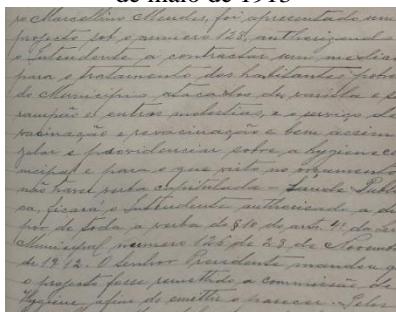 de maio de 1913
ro Marcellino Mendes, foi apresentado um
projecto sob o numero 128, authorizando
o Intendente a contractar um medico
para o tratamento dos habitantes pobres
do Municipio atacados de variola e sa
rampão e outras molestias, e o serviço de
vacinação e revacinação e bem assim
zelar e providenciar sobre a hygiene
municipal e para o que visto no orçamento
não haver verba capitulada - Saude Publi
ca, ficará o Intendente authorizado a dis
pôr de toda a verba do § 10 do art. 4º da lei
Municipal numero 126 de 23 de Novembro
de 1912. O Senhor Presidente mandou q
o projecto fosse remettido a commissão de
Hygiene afim de emittir o parecer. Pelos